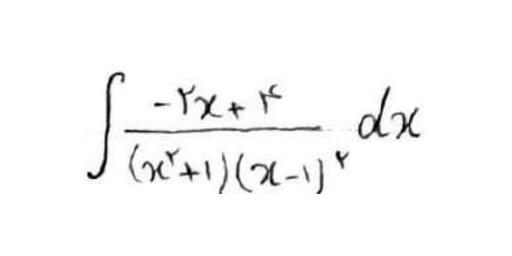 ∫ (-۲x + ۴) / ((x^۲ + ۱)(x - ۱)^۲) dx